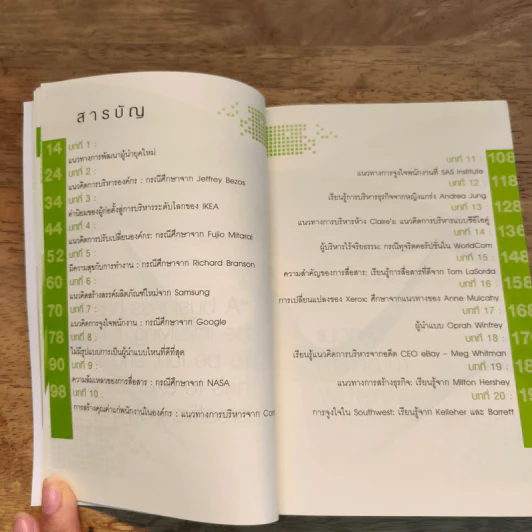 สารบัญ
14 บทที่ 1 :
แนวทางการพัฒนาผู้นำยุคใหม่
24 บทที่ 2 :
แนวคิดการบริหารองค์กร : กรณีศึกษาจาก Jeffrey Bezos
34 บทที่ 3 :
ค่านิยมของผู้ก่อตั้งสู่การบริหารระดับโลกของ IKEA
44 บทที่ 4 :
แนวคิดการปรับเปลี่ยนองค์กร: กรณีศึกษาจาก Fujio Mitarai
52 บทที่ 5 :
มีความสุขกับการทำงาน : กรณีศึกษาจาก Richard Branson
60 บทที่ 6 :
แนวคิดสร้างสรรค์ผลิตภัณฑ์ใหม่จาก Samsung
70 บทที่ 7 :
แนวคิดการจูงใจพนักงาน : กรณีศึกษาจาก Google
78 บทที่ 8 :
ไม่มีรูปแบบการเป็นผู้นำแบบไหนที่ดีที่สุด
90 บทที่ 9 :
ความล้มเหลวของการสื่อสาร : กรณีศึกษาจาก NASA
98 บทที่ 10 :
การสร้างคุณค่าแก่พนักงานในองค์กร : แนวทางการบริหารจาก
บทที่ 11 : 108
แนวทางการจูงใจพนักงานที่ SAS institute
บทที่ 12 : 118
เรียนรู้การบริหารธุรกิจจากหญิงแกร่ง Andrea Jung
บทที่ 13 : 128
แนวทางการบริหารห้าง Claire's: แนวคิดการบริหารแบบซีอีโอคู่
บทที่ 14 : 136
ผู้บริหารไร้จริยธรรม: กรณีทุจริตคอรัปชั่นใน WorldCom
บทที่ 15 : 148
ความสำคัญของการสื่อสาร: เรียนรู้การสื่อสารที่ดีจาก Tom LaSorda
บทที่ 16 : 158
การเปลี่ยนแปลงของ Xerox: ศึกษาจากแนวทางของ Anne Mulcahy
บทที่ 17 : 168
ผู้นำแบบ Oprah Winfrey
บทที่ 18 :
เรียนรู้แนวคิดการบริหารจากอดีต CEO eBay - Meg Whitman
บทที่ 19 :
แนวทางการสร้างธุรกิจ: เรียนรู้จาก Milton Hershey
บทที่ 20 :
การจูงใจใน Southwest: เรียนรู้จาก Kelleher และ Barrett